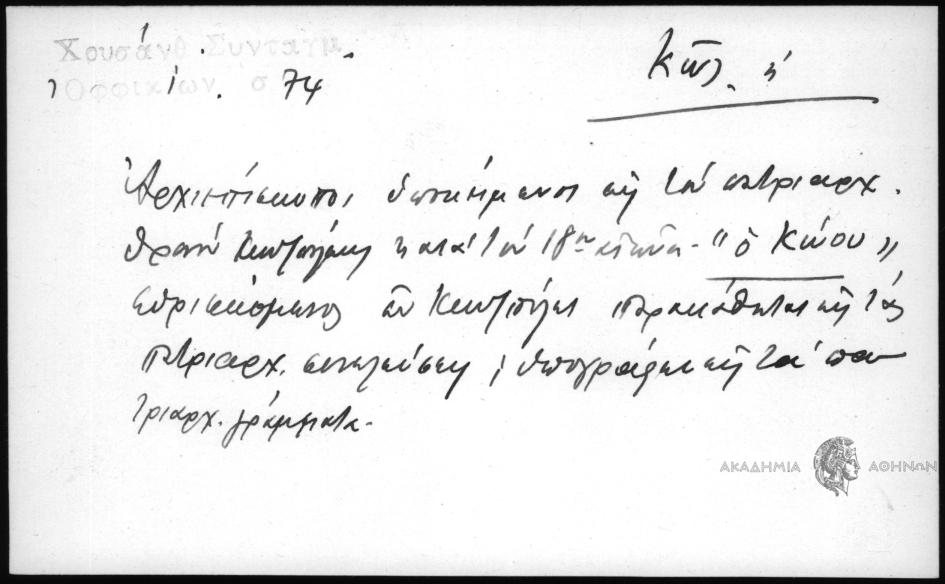 Χρυσάνθ. Συνταγμ
Ὀφφικίων σ. 74
Κῶς, ἡ
Ἀρχιεπίσκοποι ὑποκείμενοι εἰς τὸν πατριαρχ.
θρόνον Κωνσ/πόλεως κατὰ τὸν 18ον αἰῶνα - "ὁ Κώου"
εὑρισκόμενος ἐν Κωνσ/πόλει παρακάθηται εἰς τὰς
πατριαρχ. συνελεύσεις καὶ ὑπογράφει εἰς τὰ πα-
τριαρχ. γράμματα.
ΑΚΑΔΗΜΙΑ ΑΘΗΝΩΝ